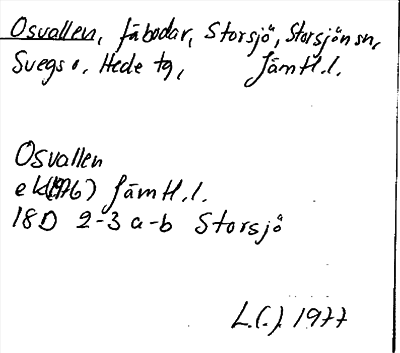 Osvallen, fäbodar, Storsjö, Storsjön sn,
Svegs o. Hede tg, Jämtl.l.
Osvallen
ek(1976) Jämtl.l.
18D 2-3 a-b Storsjö
L.(.). 1977